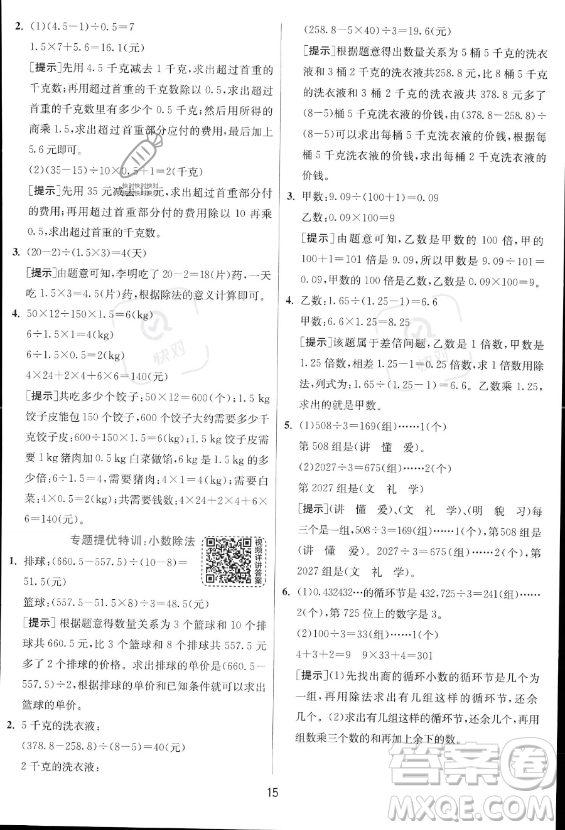 2. (1)(4.5-1)÷0.5=7
1.5×7+5.6=16.1(元)
[提示]先用 4.5 千克减去 1 千克，求出超过首重的
千克数；再用超过首重的千克数除以 0.5 千克，求出
超过首重的千克数里有多少个 0.5 千克；然后用所得的
商乘 1.5，求出超过首重部分应付的费用，最后加上
5.6 元即可。
(2)(35-15)÷10×1=2(千克)
[提示]先用 35 元减去 元，求出超过首重部分付
的费用，再用超过首重部分付的费用除以 10 再乘 1，
求出超过首重的千克数。
3. (20-2)÷(1.5×3)=4(天)
[提示]由题意可知，李明吃了 20-2=18(片)药，一天
吃 1.5×3=4.5(片)，根据除法的意义计算即可。
4. 50×12÷150×1.5=6(kg)
6÷1.5×1=4(kg)
6÷1.5×1.5=6(kg)
4×24+2×4+6×2=116(元)
[提示]共吃多少个饺子：50×12=600(个)；1.5 kg
饺子皮能包 150 个饺子，600 个饺子大约需要多少千
克饺子皮：600÷150×1.5=6(kg)；1.5 kg 饺子皮
需要 1 kg 猪肉加 1.5 kg 白菜做馅，6 kg 饺子皮需要
猪肉：6÷1.5×1=4(kg)；6 kg 饺子皮需要白
菜：6÷1.5×1.5=6(kg)；共需 4×24+2×4+6×2=
116(元)。
专题提优特训：小数除法
视频详讲答案
1. 排球：(660.5-557.5)÷(10-8)=
51.5(元)
篮球：(557.5-51.5×8)÷3=48.5(元)
[提示]根据题意得出数量关系为 3 个篮球和 10 个排
球共 660.5 元，3 个篮球和 8 个排球共 557.5 元多了
10-8=2 个排球的价格。求出排球的单价是(660.5
-557.5)÷2，根据排球的单价和已知条件就可以求出
篮球的单价。
2. 5 千克的洗衣液：
(378.8-258.8)÷(8-5)=40(元)
2 千克的洗衣液：
(258.8-5×40)÷3=19.6(元)
[提示]根据题意得出数量关系为 5 桶 5 千克的洗衣
液和 3 桶 2 千克的洗衣液共 258.8 元，比 8 桶 5 千克
的洗衣液和 3 桶 2 千克的洗衣液共 378.8 元多了
(8-5)桶 5 千克洗衣液的价钱。求出 5 千克洗衣液的
价钱，根据 5 千克洗衣液的价钱和已知条件就可以求
出 2 千克洗衣液的价钱。
3. 甲数：9.09÷(100+1)=0.09
乙数：0.09×100=9
[提示]由题意可知，乙数是甲数的 100 倍，甲乙两数的
和就是甲数的 100+1=101 倍，所以甲数是 9.09÷
(100+1)=0.09，乙数是 0.09×100=9。
4. 乙数：1.65÷(1.25-1)=6.6
甲数：6.6×1.25=8.25
[提示]该题属于差倍问题，乙数是 1 倍数，甲数是
1.25 倍数，相差 1.25-1=0.25 倍，求 1 倍数用除
法，列式为：1.65÷(1.25-1)=6.6。乙数乘 1.25，
求出的就是甲数。
5. (1)508÷3=169(组)……1(个)
第 508 组是(讲 懂 爱)。
(2)2027÷3=675(组)……2(个)
第 2027 组是(文 礼 学)
[提示](讲 懂 爱)、(文 礼 学)、(明 貌 习)每
三个是一组，508÷3=169(组)……1(个)，第 508 组是
(讲 懂 爱)。2027÷3=675(组)……2(个)，第
2027 组是(文 礼 学)。
6. (1)0.432432…的循环节是 432，725÷3=241(组)……
2(个)。第 725 位上的数字是 3。
(2)100÷3=33(组)……1(个)
4+3+2=9 9×33+4=301
[提示](1)先找出商的循环小数的循环节是几个为
一组，再用除法求出有几组这样的循环节，还余几个。
(2)求出有几组这样的循环节，还余几个，再用每组数
的和乘组数的和再加上余下的数。
15
快对
答案圈
MXQE.COM